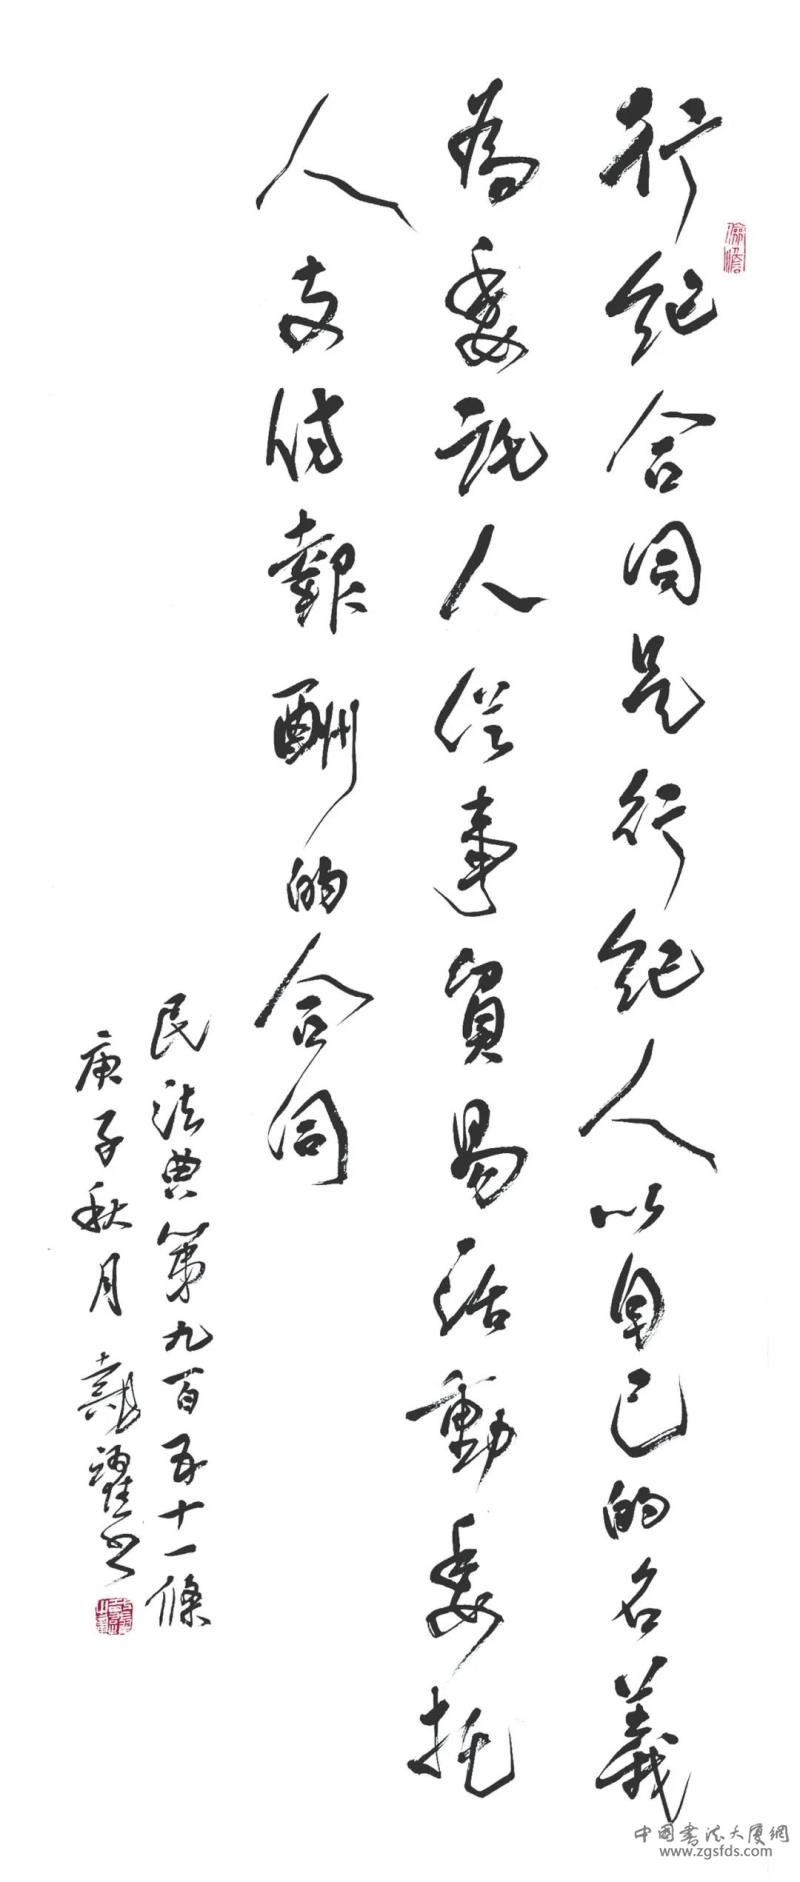 行纪合同是行纪人以自己的名義
為委託人從事貿易活動委托
人支付報酬的合同
民法典第九百五十一條
庚子秋月戴躍书
中国书法大厦網
www.zgsfds.com